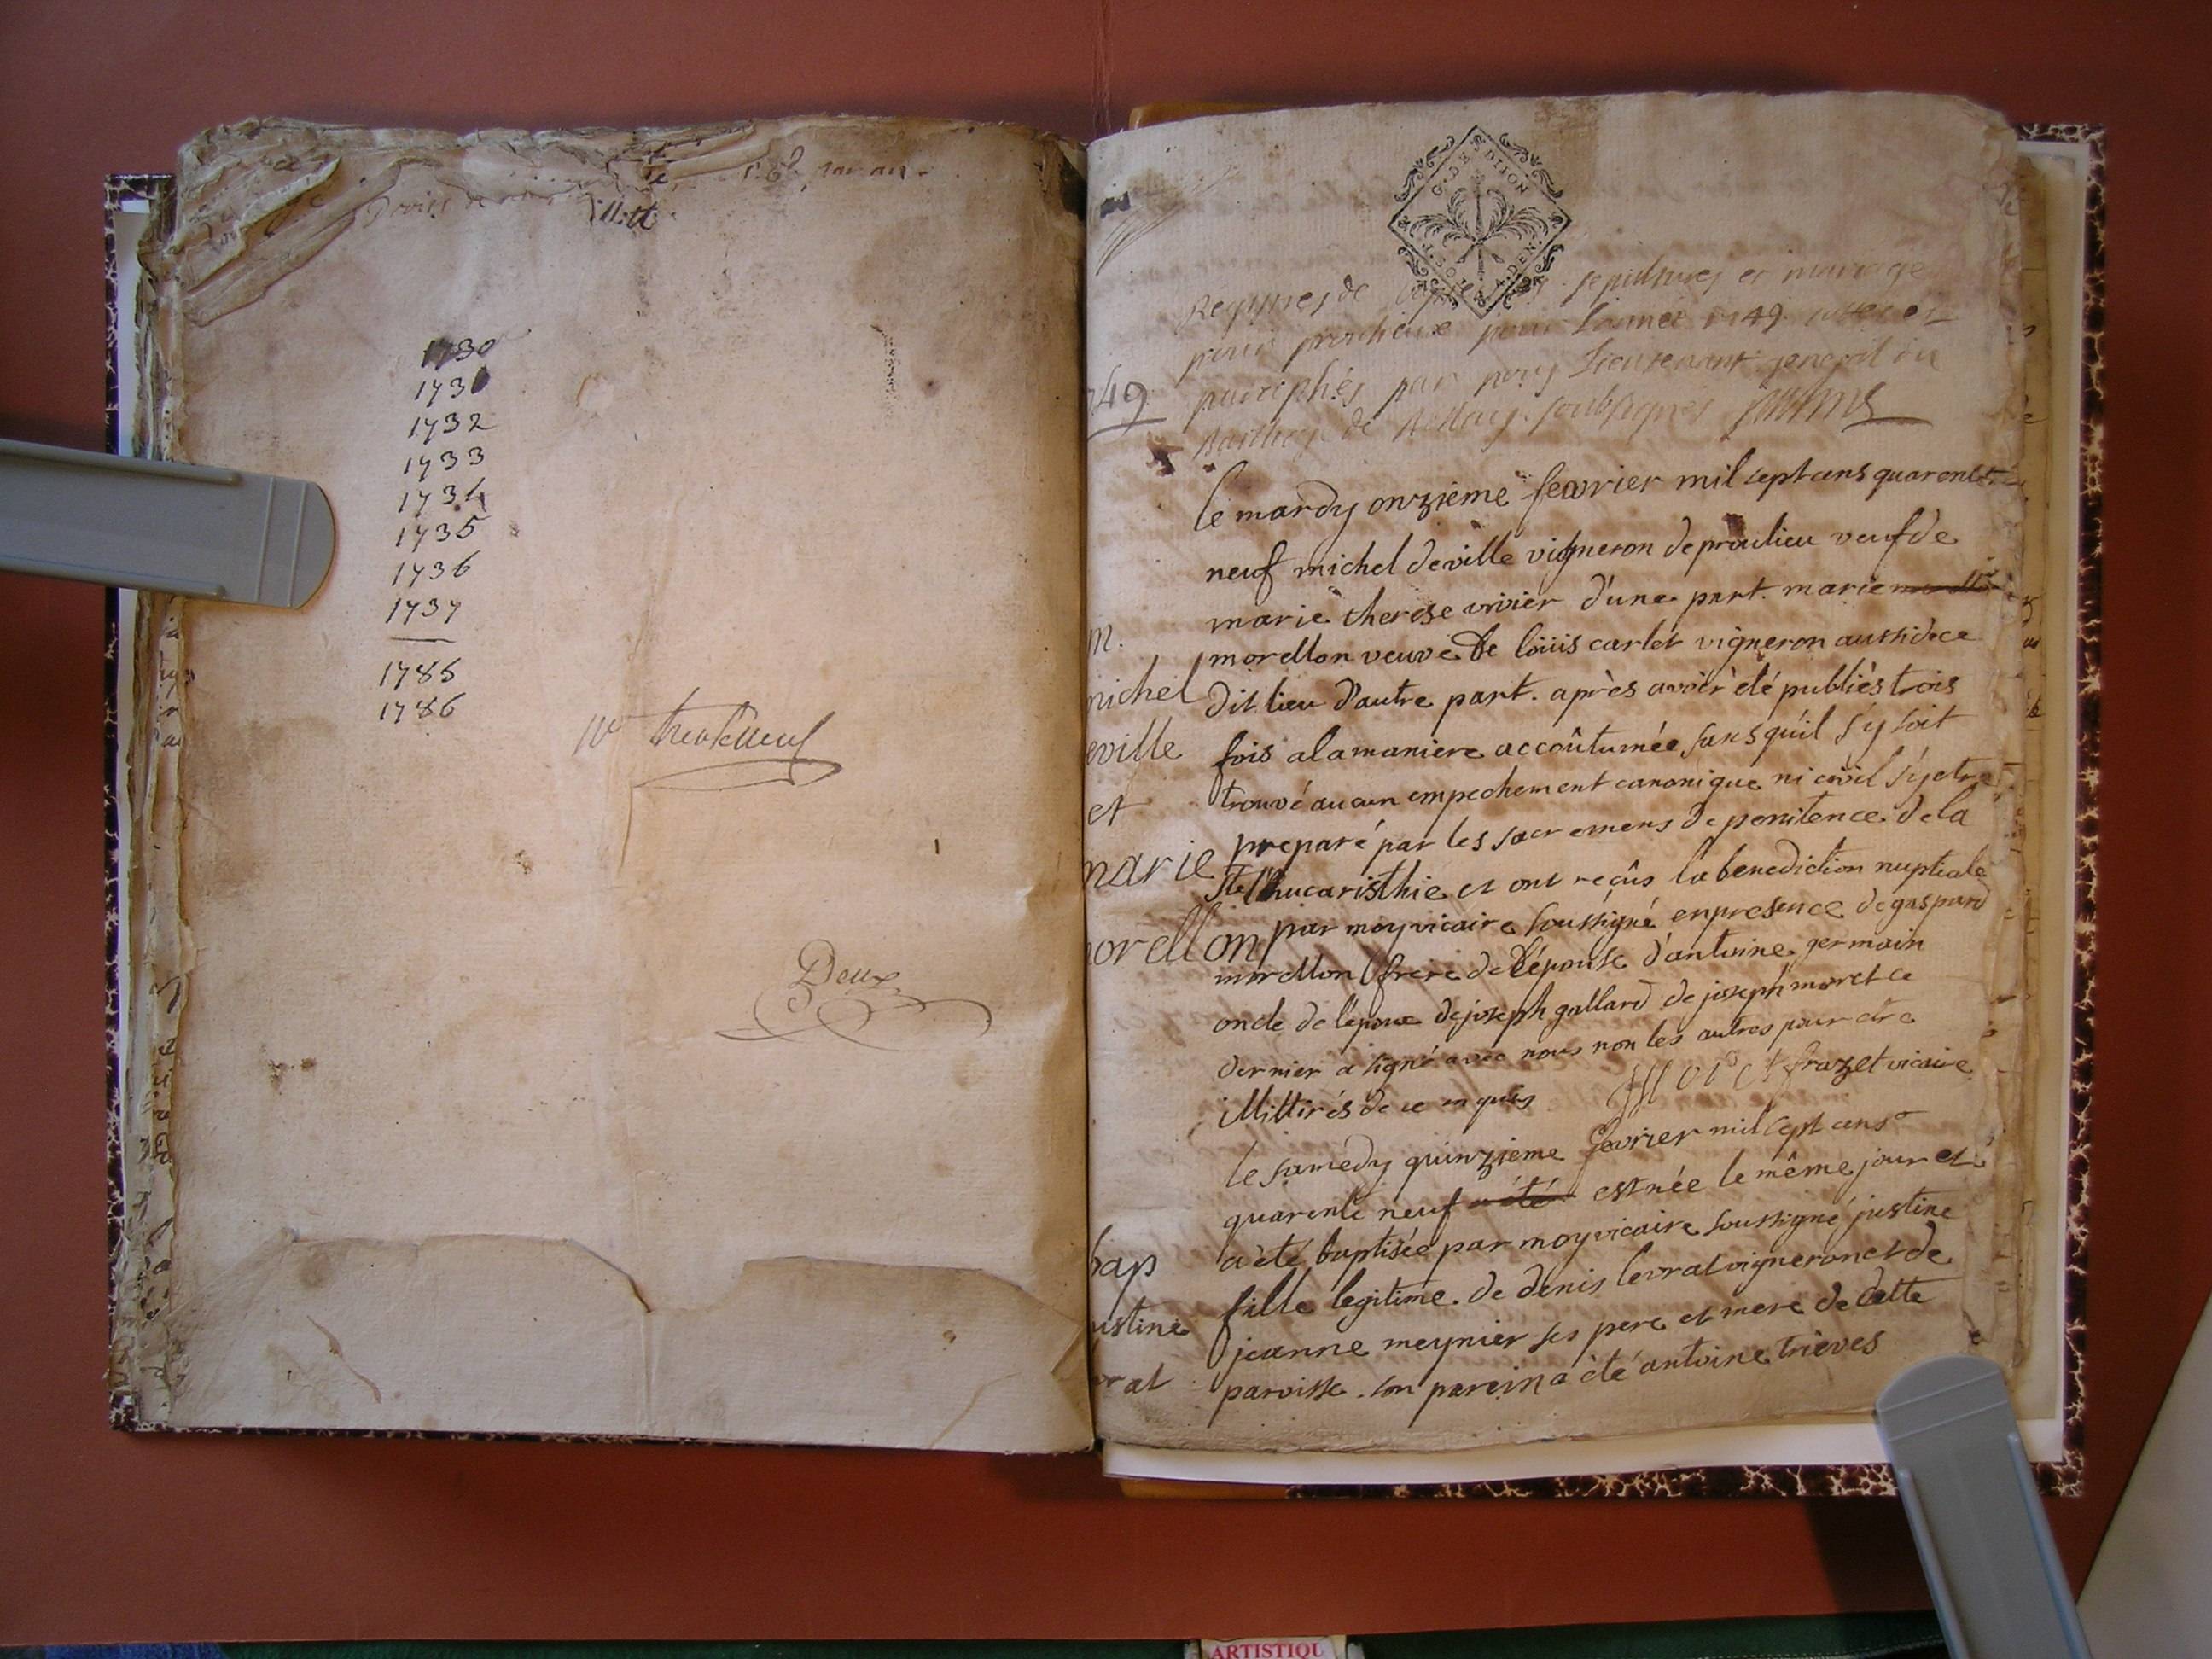 par an
1730
1731
1732
1733
1734
1735
1736
1737
1785
1786
Deux
G. DE DIION
2. SOL. 4. DEN.
Regitres de sepultures et mariage
pour proulieux pour Lannée 1749 cottes et
paraphés par nous Lieutenant general au
Bailliage de Belley soubsignés
749
le mardy onzième fevrier mil sept cens quarente
neuf michel deville vigneron de proulieu veuf de
marie therese vivier d'une part. marie
morellon veuve de loüis carlet vigneron aussi de ce
dit lieu d'autre part. après avoir été publiés trois
fois a la maniere accoûtumée sans qu'il s'y soit
trouvé aucun empechement canonique ni civil s'y etre
preparé par les sacremens de penitence. de la
ste Eucaristhie et ont reçûs la benediction nuptiale
par moy vicaire soussigné en presence de gaspard
morellon frere de l'épouse d'antoine germain
oncle de l'époux de joseph gallard de joseph moret ce
dernier a signé avec nous non les autres pour etre
illittirés de ce enquis
J Moret frazet vicaire
m.
michel
eville
et
marie
morellon
le samedy quinzieme fevrier mil sept cens
quarente neuf a été est née le même jour et
a été baptisée par moy vicaire soussigné justine
fille legitime. de denis levrat vigneron et de
jeanne meynier ses pere et mere de cette
paroisse. son parein a été antoine trieves
bap
ustine
vrat
ARTISTIQU